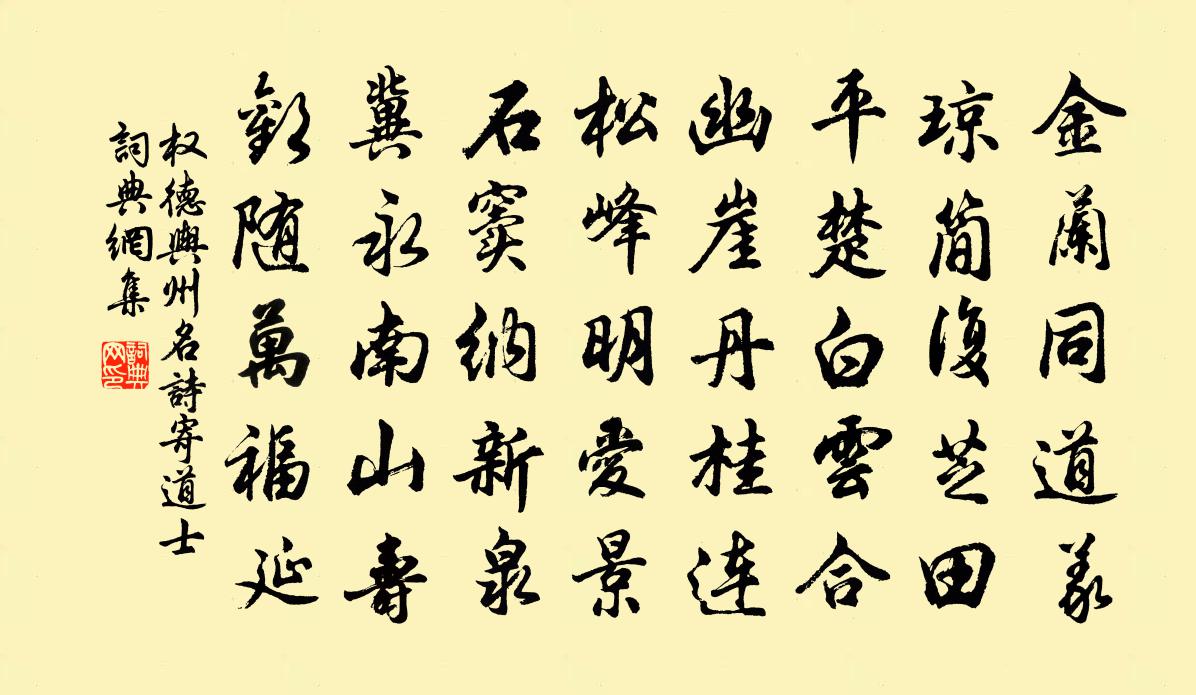 金蘭同道義
琼简復芝田
平楚白雲合
幽崖丹桂连
松峰明愛景
石窦纳新泉
冀永南山壽
歡随萬福延
权德輿州名詩寄道士
詞典網集
詞典
网印